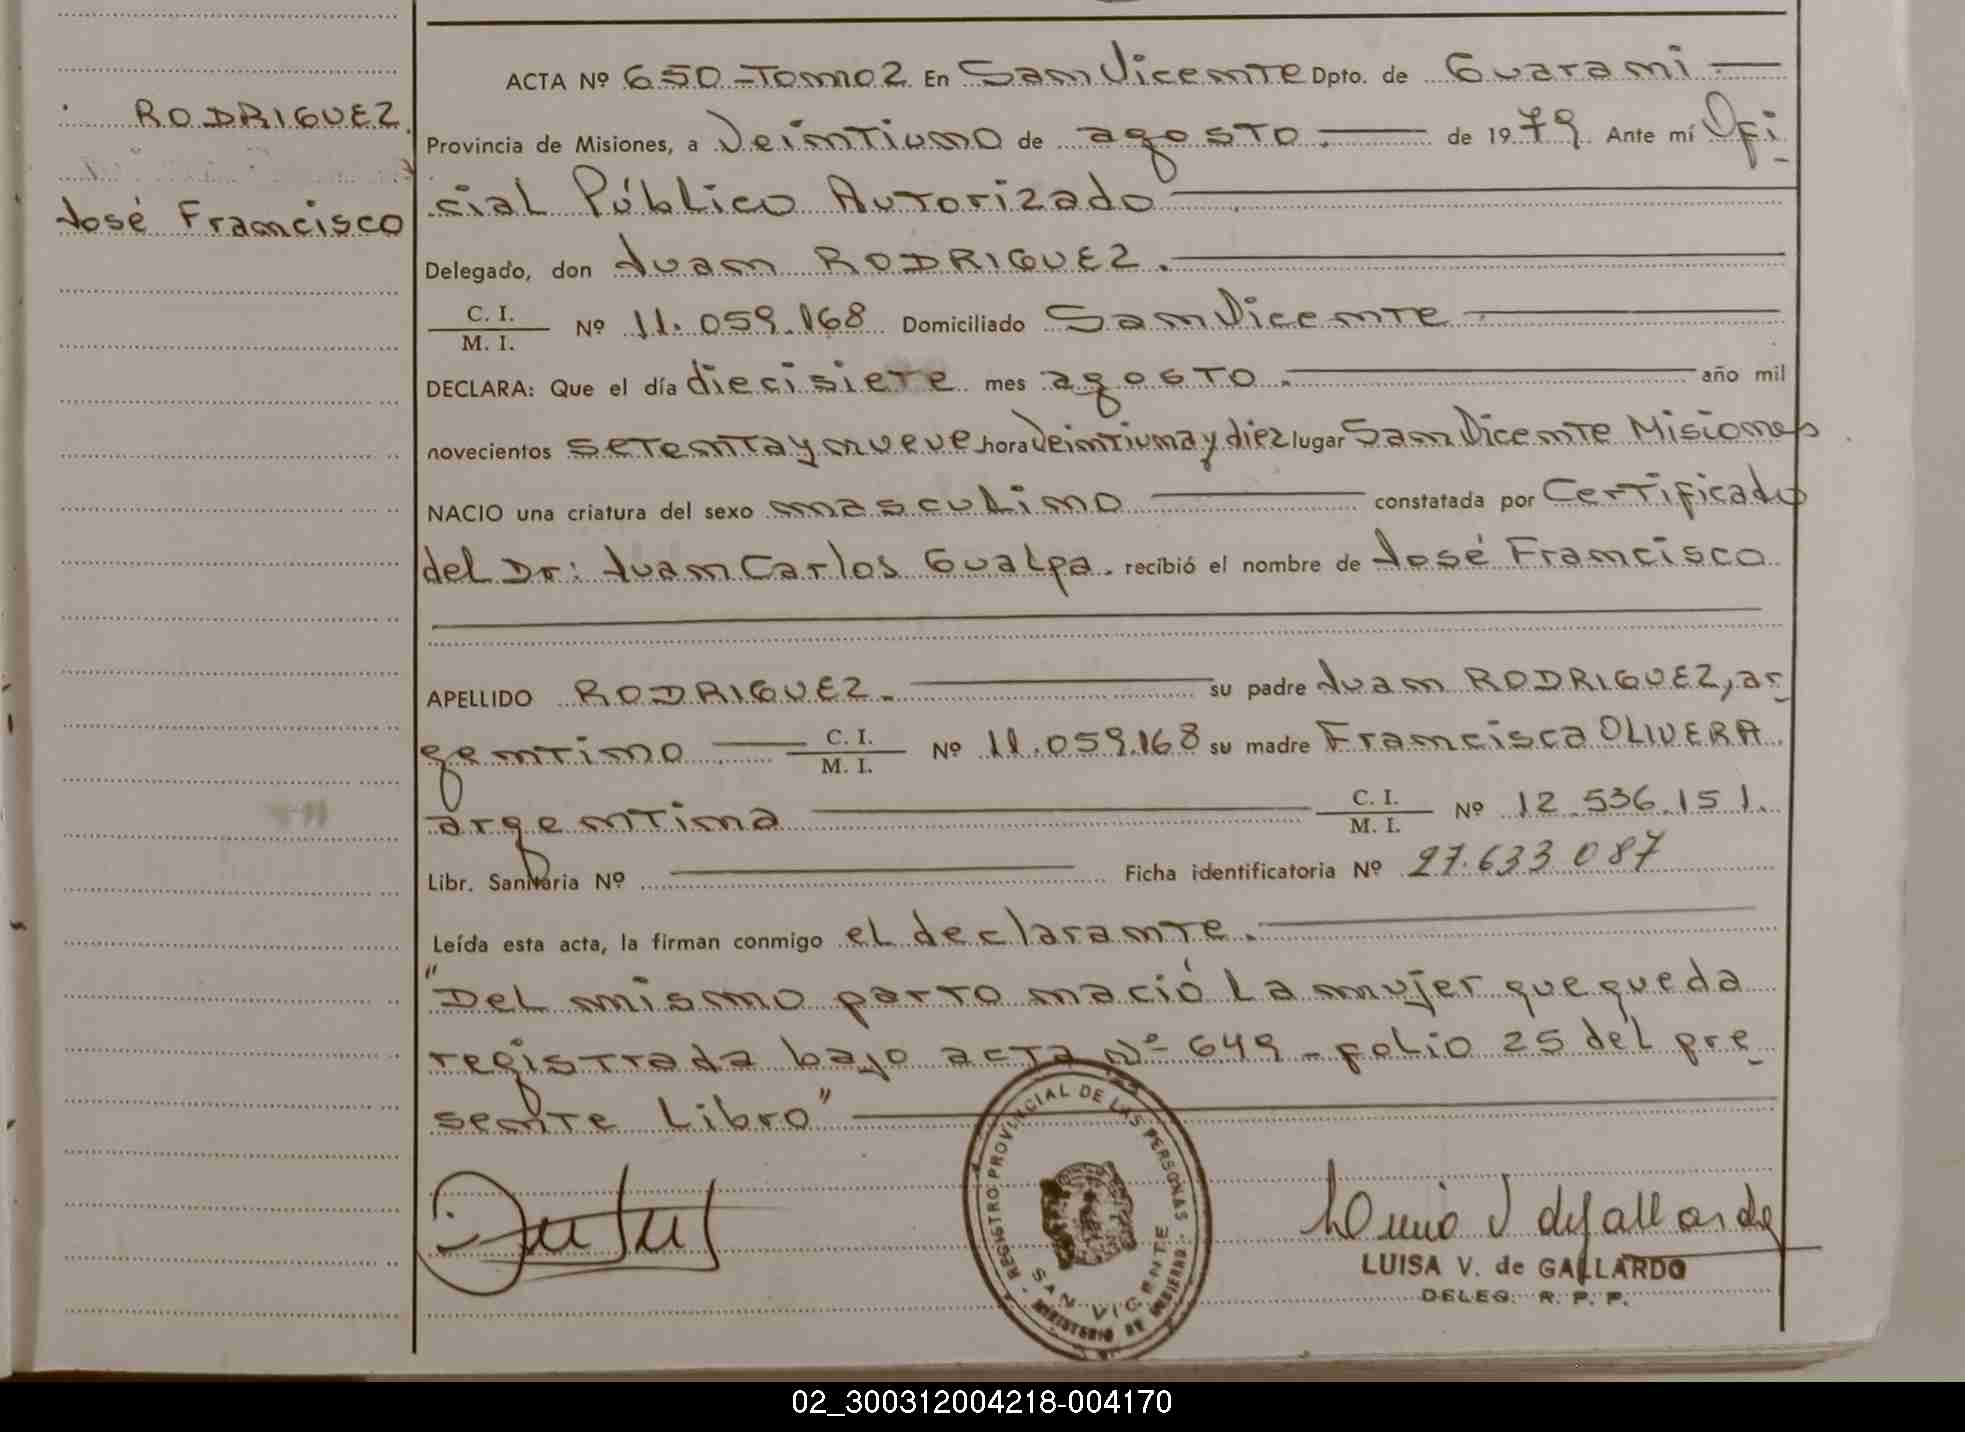 ACTA Nº 650 - Tomo 2 En San Vicente Dpto. de Guarani
RODRIGUEZ
Provincia de Misiones, a Veintiuno de agosto. de 1979. Ante mí Ofi-
José Francisco
cial Público Autorizado
Delegado, don Juan RODRIGUEZ.
C. I.
M. I. Nº 11.059.168 Domiciliado San Vicente
DECLARA: Que el día diecisiete mes agosto. año mil
novecientos setenta y nueve hora Veintiuna y diez lugar San Vicente Misiones
NACIO una criatura del sexo masculino constatada por Certificado
del Dr: Juan Carlos Gualpa. recibió el nombre de José Francisco
APELLIDO RODRIGUEZ. su padre Juan RODRIGUEZ, ar-
gentino C. I. M. I. Nº 11.059.168 su madre Francisca OLIVERA
argentina C. I. M. I. Nº 12.536.151.
Libr. Sanitaria Nº Ficha identificatoria Nº 27.633.087
Leída esta acta, la firman conmigo el declarante.
"Del mismo parto nació la mujer que queda
registrada bajo acta Nº 649 - folio 25 del pre-
sente Libro"
REGISTRO PROVINCIAL DE LAS PERSONAS
SAN VICENTE
MINISTERIO DE GOBIERNO
Luisa V de Gallardo
LUISA V. de GALLARDO
DELEG. R. P. P.
02_300312004218-004170